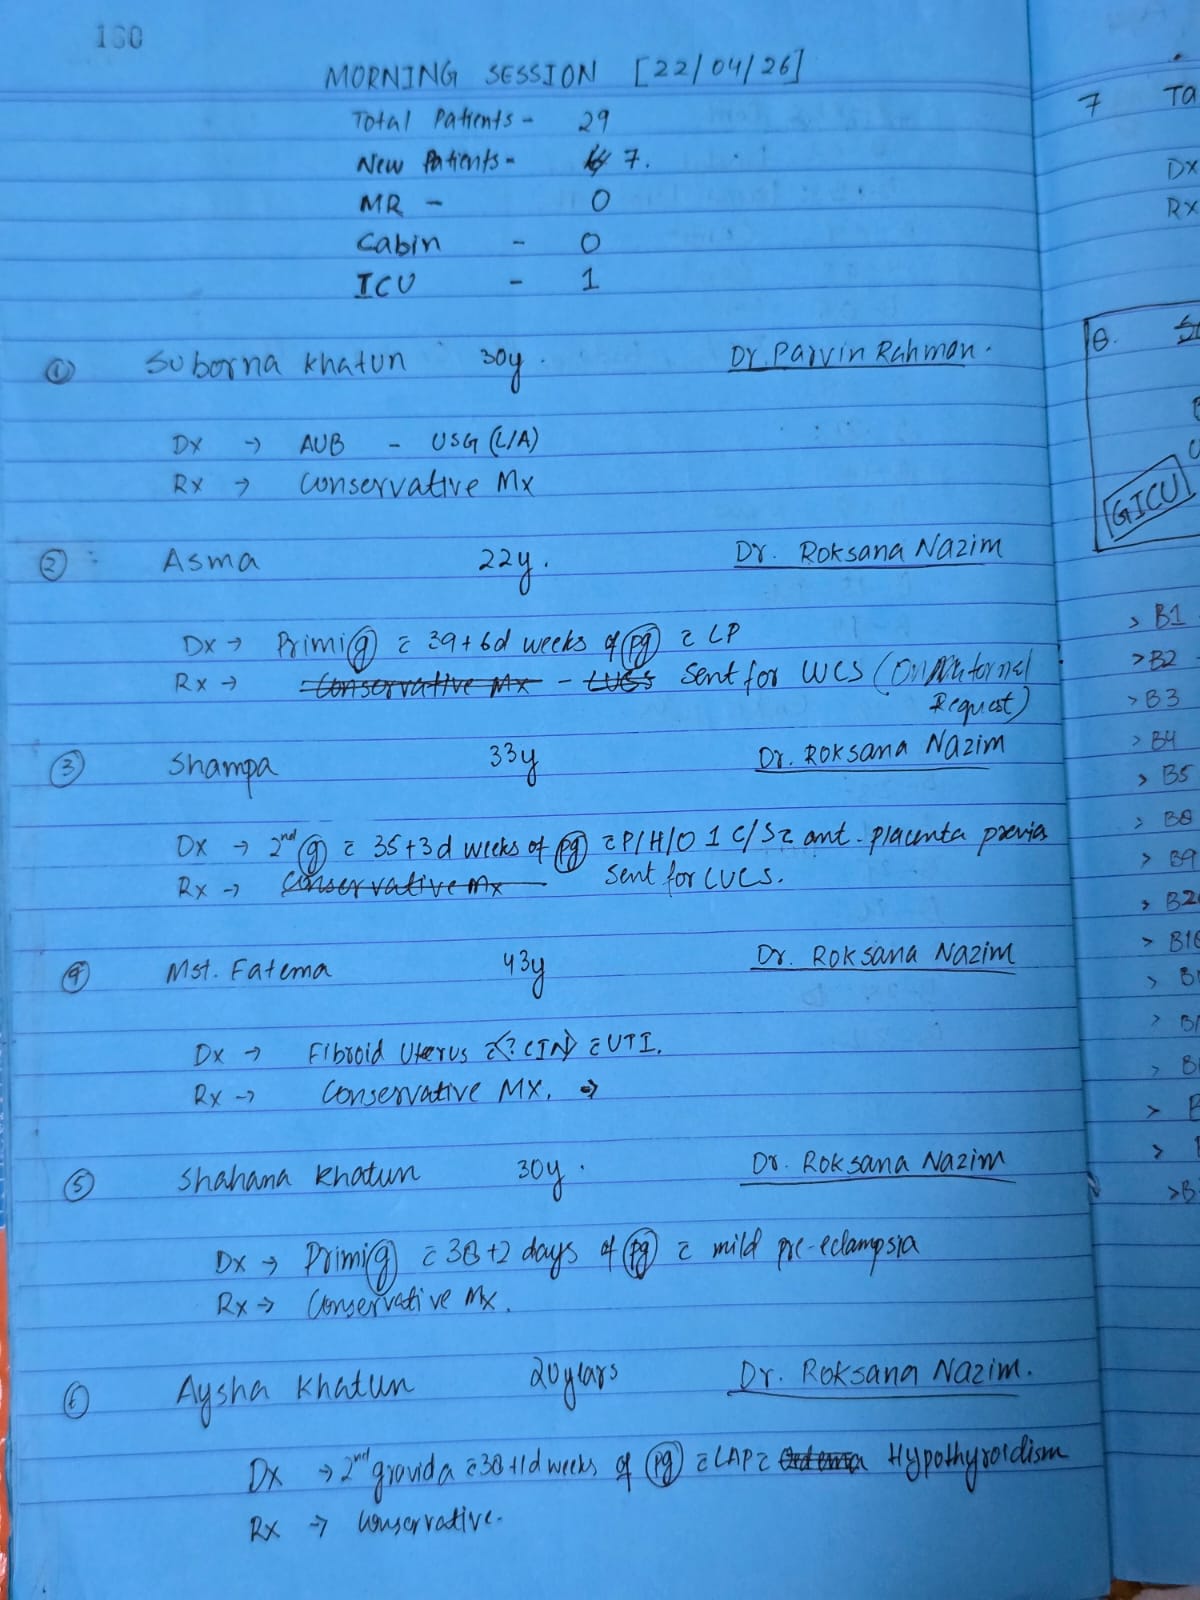 160
MORNING SESSION [22/04/26]
Total Patients - 29
New Patients - 7.
MR - 0
Cabin - 0
ICU - 1
① Suborna Khatun 30y. Dr. Parvin Rahman.
Dx → AUB - USG (L/A)
Rx → Conservative Mx
② : Asma 22y. Dr. Roksana Nazim
Dx → Primi g c̄ 39+6d weeks of pg c̄ LP
Rx → Conservative Mx - LUCS Sent for LUCS (On Maternal
Request)
③ Shampa 33y Dr. Roksana Nazim
Dx → 2nd g c̄ 35+3d weeks of pg c̄ P/H/O 1 C/S c̄ ant. placenta previa
Rx → Conservative Mx Sent for LUCS.
④ Mst. Fatema 43y Dr. Roksana Nazim
Dx → Fibroid Uterus c̄ <? CIN> c̄ UTI.
Rx → Conservative MX. →
⑤ Shahana Khatun 30y. Dr. Roksana Nazim
Dx → Primi g c̄ 38+2 days of pg c̄ mild pre-eclampsia
Rx → Conservative Mx.
⑥ Aysha Khatun 20years Dr. Roksana Nazim.
Dx → 2nd gravida c̄ 38+1d weeks of pg c̄ LAP c̄ Hypothyroidism
Rx → Conservative.
7 Ta
Dx
Rx
8.
GICU
> B1
> B2
> B3
> B4
> B5
> B8
> B9
> B2
> B1
> B
> B
> B
> B
>
> B